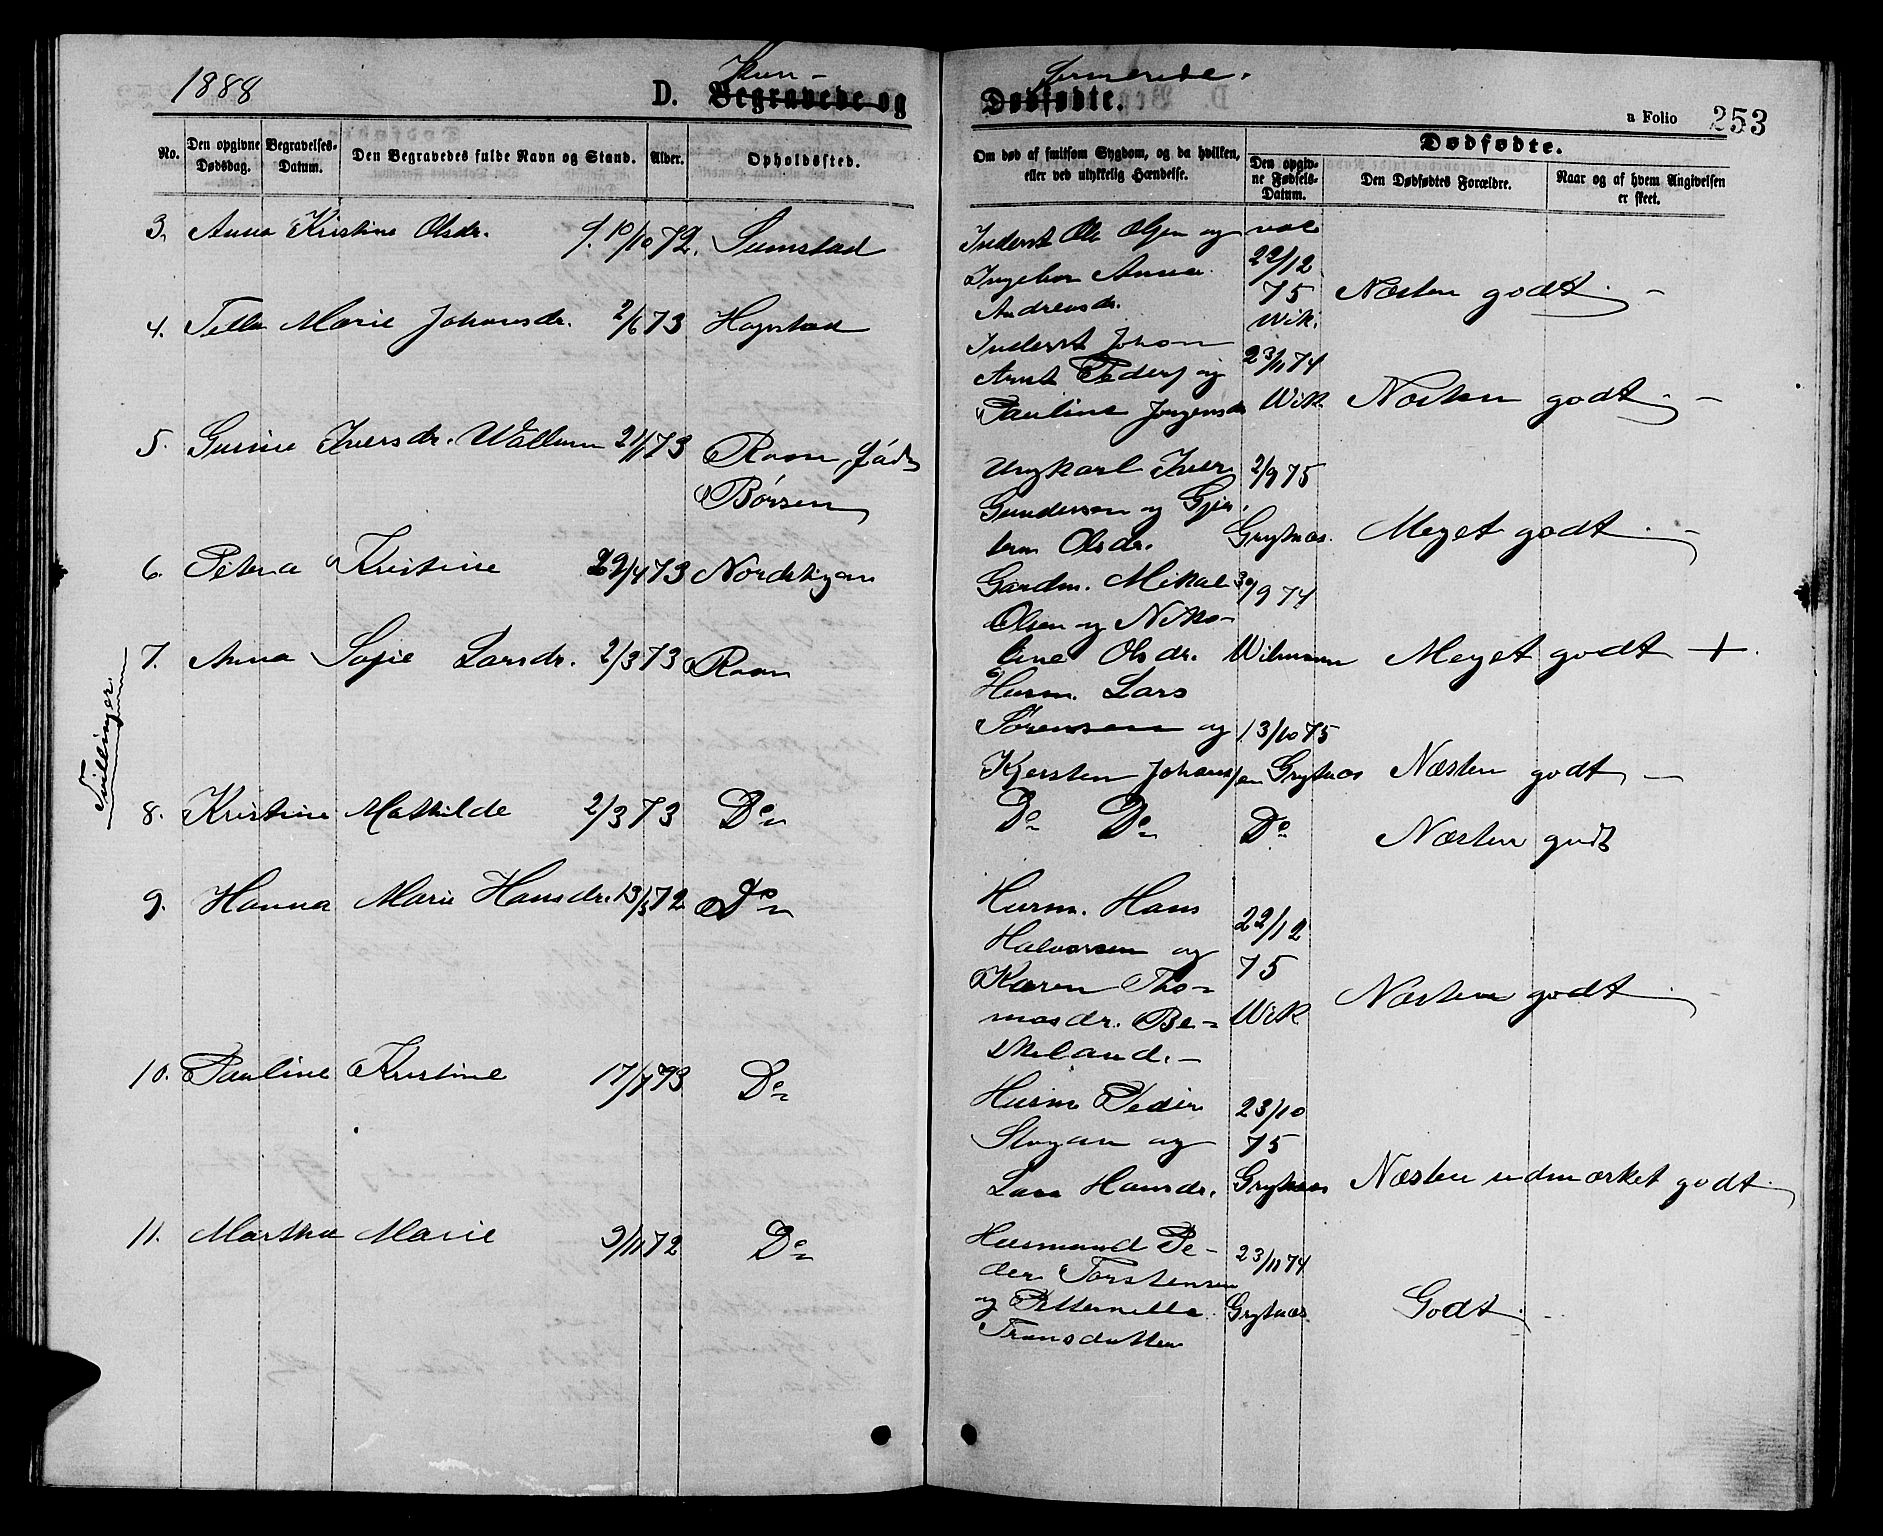 1888
D. Begravede og
Kon-
Dødfødte.
firmerede.
a Folio 253
No.
Den opgivne Dødsdag.
Begravelses-Datum.
Den Begravedes fulde Navn og Stand.
Alder.
Opholdssted.
Om død af smitsom Sygdom, og da hvilken, eller ved ulykkelig Hændelse.
Dødfødte.
Den opgiv-ne Fødsels-Datum.
Den Dødfødtes Forældre.
Naar og af hvem Angivelsen er skeet.
3. Anna Kristine Olsdr. f. 10/10 72. Sumstad
Inderst Ole Olsen og
Ingebor Anna
Andreasdr.
vac
22/12
75
Wik.
Næsten godt. -
4. Marie Johansdr. 2/6 73 Hopstad
Inderst Johan
Arnt Peders og
Pauline Jørgensdr
23/11 74
Wik
Næsten godt. -
5. Gurine Iversdr. Wallum 21/1 73 Raan, fød
Børsen
Ungkarl Iver
Gunderson og
Olsdr.
2/9 75
Grytnæs.
Meget godt. -
6. Petra Kristine 22/4 73
Gardm. Mikal
Olsen og Niko-
line Olsdr.
30/9 74
Meget godt +.
Tvillinger
7. Anna Sofie Larsdr. 2/3 73 Raan
Husm. Lars
Sørensen og
Kjersten Johansen
13/10 75
Grytnæs
Næsten godt -
8. Kristine Mathilde 2/3 73 Do
Do Do
Do
Næsten godt
9. Hanna Marie Hansdr. 13/3 72 Do
Husm. Hans
Halvorsen og
Karen Tho-
masdr. Be-
skeland. -
22/12
75
Wik
Næsten godt. -
10. Pauline Kristine 17/7 73 Do
Husm Peder
og
Hansdr.
23/10
75
Grytnæs
Næsten udmærket godt.
11. Martha Marie 9/11 72 Do
Husmand Pe-
der Torstensen
og Petternille
23/11 74
Grytnæs.
Godt. -